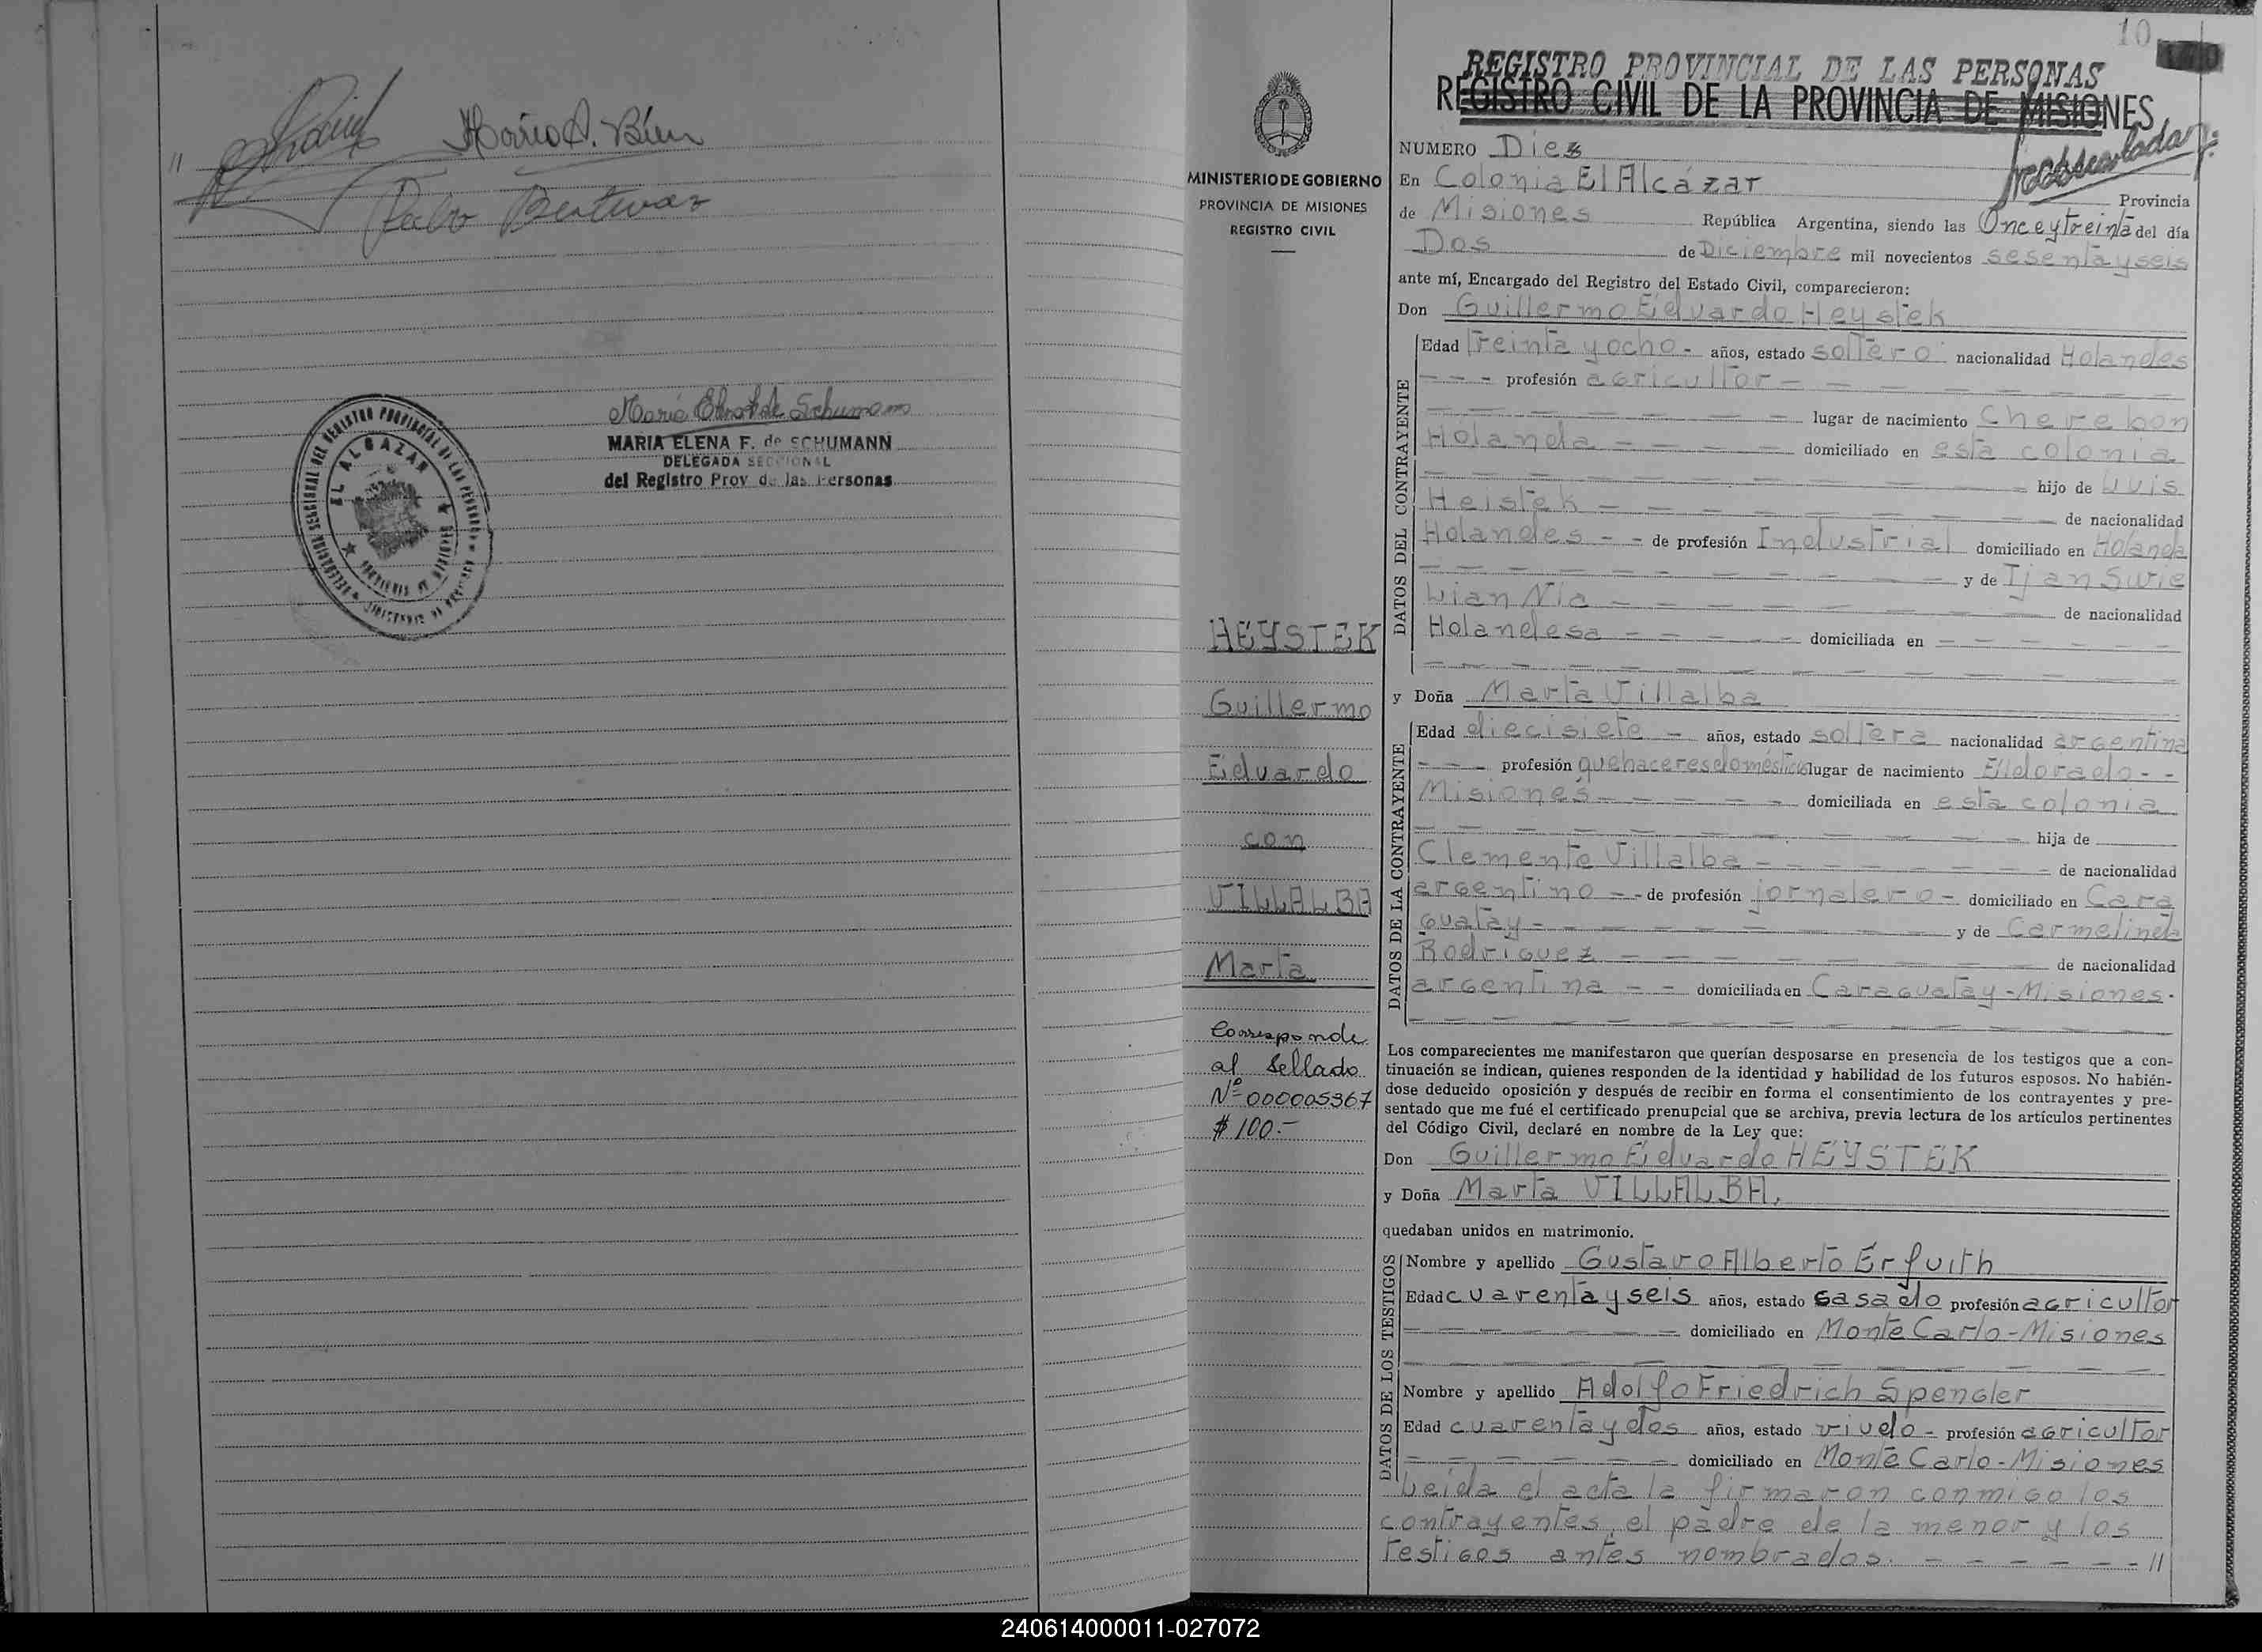 Mario A. Bien
Pablo
MARIA ELENA F. de SCHUMANN
DELEGADA SECCIONAL
del Registro Prov de las Personas
EL ALCAZAR
MINISTERIO DE GOBIERNO
PROVINCIA DE MISIONES
REGISTRO CIVIL
HEYSTEK
Guillermo
Eduardo
con
VILLALBA
Marta
Corresponde
al Sellado
Nº 000005367
$ 100.-
10
REGISTRO PROVINCIAL DE LAS PERSONAS
REGISTRO CIVIL DE LA PROVINCIA DE MISIONES
NUMERO Diez
En Colonia El Alcázar
Provincia
de Misiones República Argentina, siendo las Once y treinta del día
Dos de Diciembre mil novecientos sesenta y seis
ante mí, Encargado del Registro del Estado Civil, comparecieron:
Don Guillermo Eduardo Heystek
DATOS DEL CONTRAYENTE
Edad treinta y ocho - años, estado soltero nacionalidad Holandes
- - - profesión agricultor - - - - - -
lugar de nacimiento Cherebon
Holanda - - - - domiciliado en esta colonia
hijo de Luis
Heistek - - - - - - - de nacionalidad
Holandes - - de profesión Industrial domiciliado en Holanda
y de Tjan Swie
Lian Nio - - - - - - - de nacionalidad
Holandesa - - - - - domiciliada en - - - - -
y Doña Marta Villalba
DATOS DE LA CONTRAYENTE
Edad diecisiete - años, estado soltera nacionalidad argentina
- - - profesión quehaceres domésticos lugar de nacimiento Eldorado - -
Misiones - - - - - domiciliada en esta colonia
hija de
Clemente Villalba - - - - - - de nacionalidad
argentino - - de profesión jornalero - domiciliado en Cara
guatay - - - - - - - y de Carmelinda
Rodriguez - - - - - - - de nacionalidad
argentina - - domiciliada en Caraguatay - Misiones.
Los comparecientes me manifestaron que querían desposarse en presencia de los testigos que a con-
tinuación se indican, quienes responden de la identidad y habilidad de los futuros esposos. No habién-
dose deducido oposición y después de recibir en forma el consentimiento de los contrayentes y pre-
sentado que me fué el certificado prenupcial que se archiva, previa lectura de los artículos pertinentes
del Código Civil, declaré en nombre de la Ley que:
Don Guillermo Eduardo HEYSTEK
y Doña Marta VILLALBA.
quedaban unidos en matrimonio.
DATOS DE LOS TESTIGOS
Nombre y apellido Gustavo Alberto Erfurth
Edad cuarenta y seis años, estado casado profesión agricultor
domiciliado en Monte Carlo - Misiones
Nombre y apellido Adolfo Friedrich Spengler
Edad cuarenta y dos años, estado viudo - profesión agricultor
domiciliado en Monte Carlo - Misiones
Leida el acta la firmaron conmigo los
contrayentes, el padre de la menor y los
testigos antes nombrados. - - - - - - //
240614000011-027072